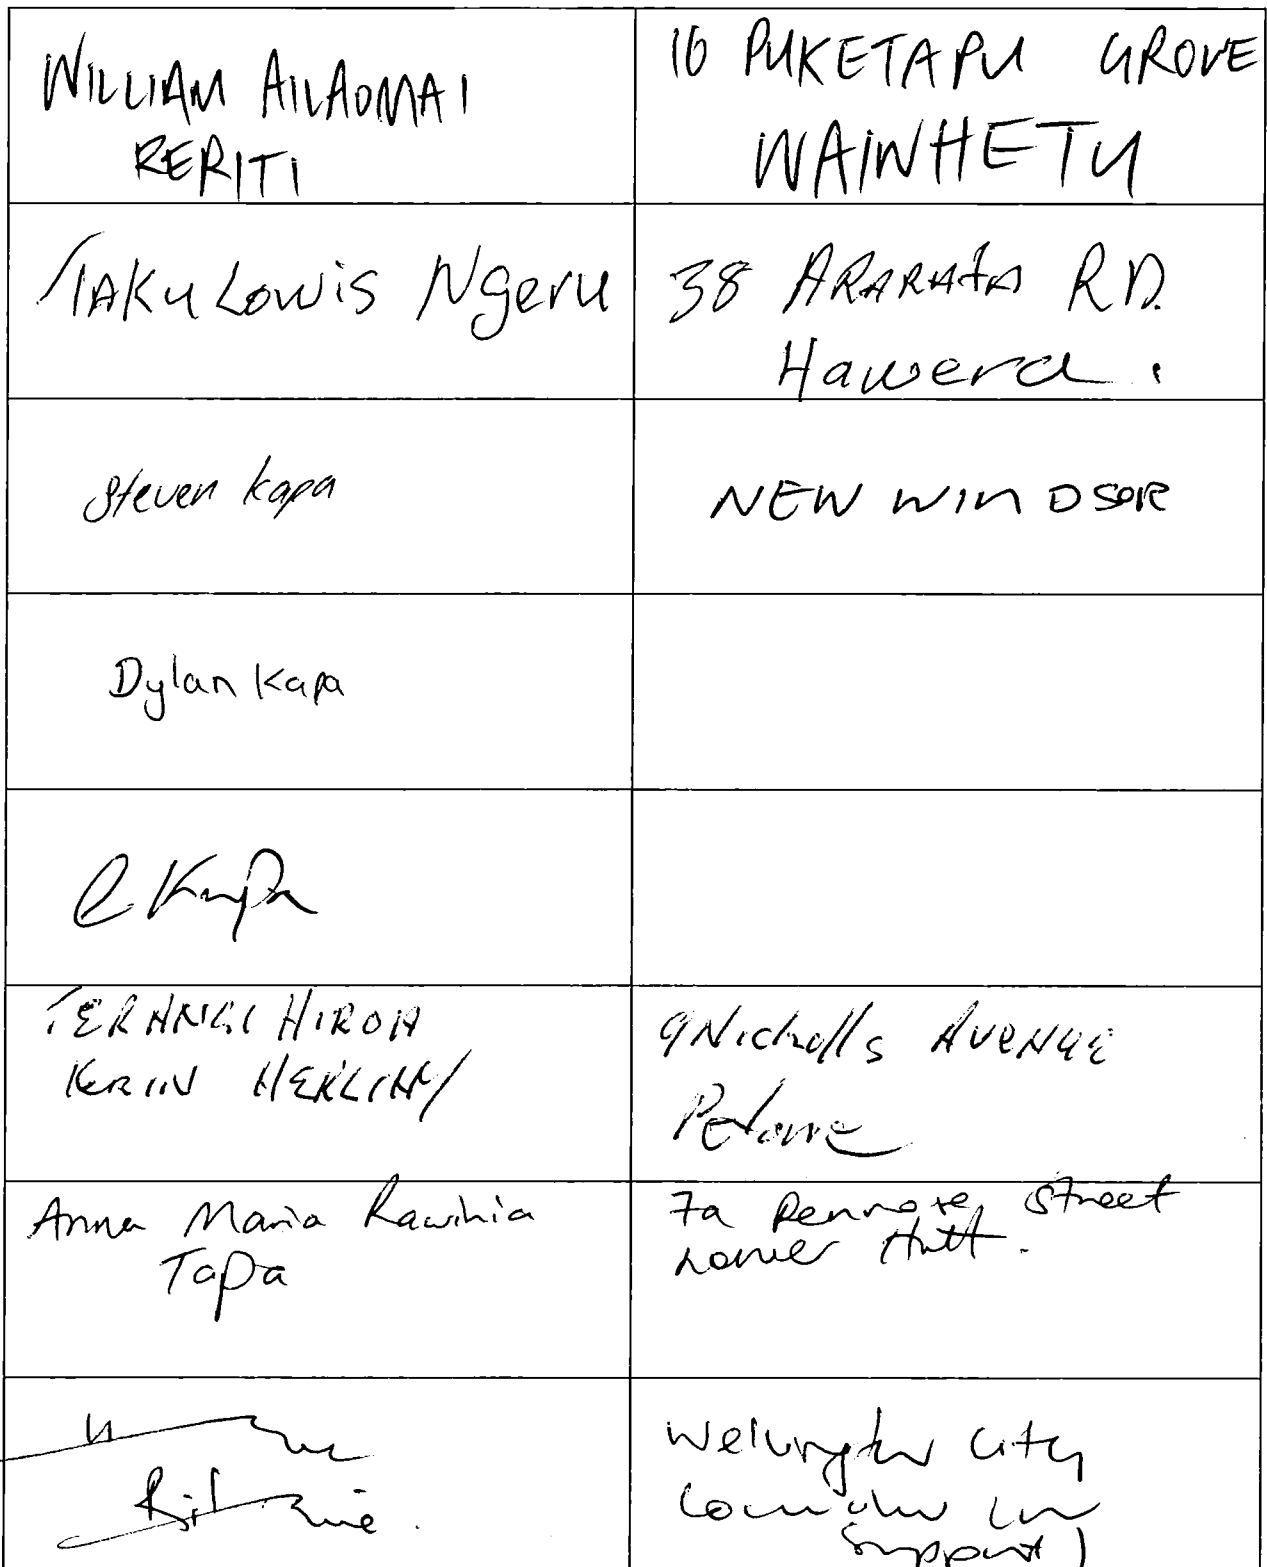 WILLIAM AILAOMAI
RERITI
10 PUKETAPU GROVE
WAINHETU
TAKU Lowis Ngeru
38 ARARATA RD.
Hawera.
Steven Kapa
NEW WINDSOR
Dylan Kapa
C Kapa
TERANGI HIROA
KERIN HERLIHY
9 Nicholls AVENUE
Petone
Anna Maria Rawinia
Tapa
7a Penrose Street
Lower Hutt.
Wellington City
Councillor in
support)